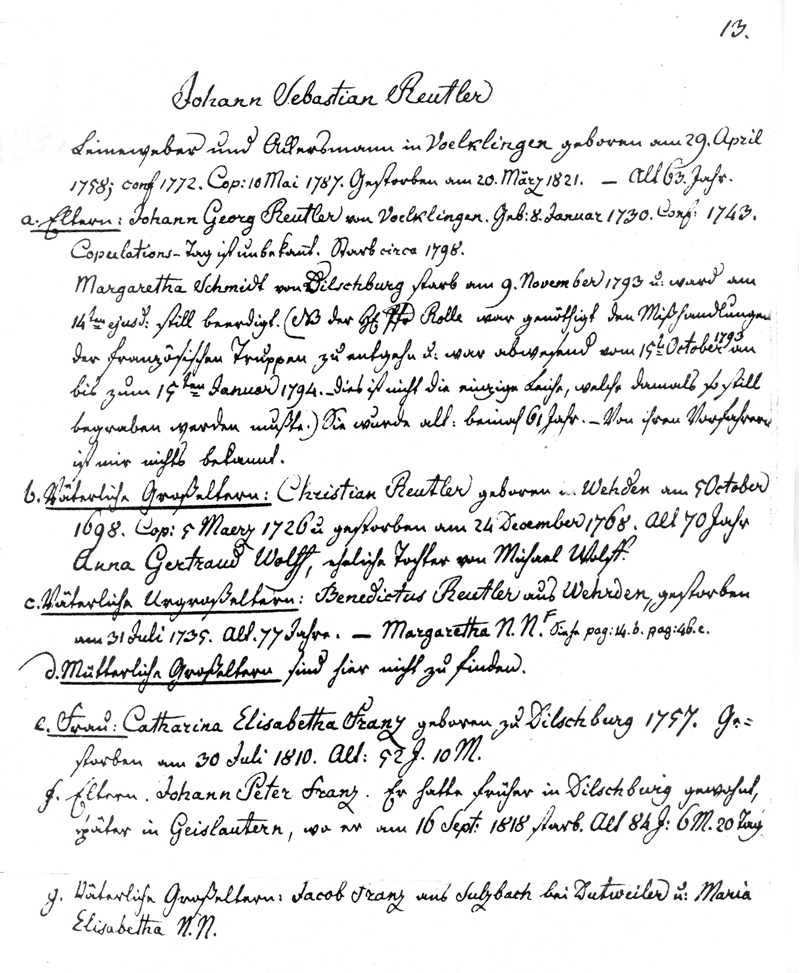 13.
Johann Sebastian Reutler
Leineweber und Ackersmann in Voelklingen geboren am 29. April
1758; conf 1772. Cop: 10 Mai 1787. Gestorben am 20. März 1821. — Alt 63. Jahr.
a. Eltern: Johann Georg Reutler von Voelklingen. Geb: 8. Januar 1730. Conf: 1743.
Copulations-Tag ist unbekañt. Starb circa 1798.
Margaretha Schmidt von Dilschburg starb am 9. November 1793 u: ward am
14ten ejusd: still beerdigt. (NB der H: Rolle war genöthigt den Mißhandlungen
der französischen Truppen zu entgehn u: war abwesend vom 15t October 1793 an
bis zum 15ten Januar 1794. – dies ist nicht die einzige Leiche, welche damals so still
begraben werden mußte.) Sie wurde alt: beinah 61 Jahr. – Von ihren Vorfahren
ist mir nichts bekannt.
b. Väterliche Großeltern: Christian Reutler geboren in Wehden am 5 October
1698. Cop: 5 Maerz 1726 u gestorben am 24 December 1768. Alt 70 Jahr
Anna Gertraud Wolff, eheliche Tochter von Michael Wolff.
c. Väterliche Urgroßeltern: Benedictus Reutler aus Wehrden, gestorben
am 31 Juli 1735. Alt. 77 Jahre. — Margaretha N. N. F Siehe pag: 14. b. pag: 46. c.
d. Mütterliche Großeltern sind hier nicht zu finden.
e. Frau: Catharina Elisabetha Franz geboren zu Dilschburg 1757. Ge=
storben am 30 Juli 1810. Alt: 52 J. 10 M.
f. Eltern. Johann Peter Franz. Er hatte früher in Dilschburg gewohnt,
später in Geislautern, wo er am 16 Sept: 1818 starb. Alt 84 J: 6 M. 20 Tag
g. Väterliche Großeltern: Jacob Franz aus Sulzbach bei Dutweiler u: Maria
Elisabetha N. N.